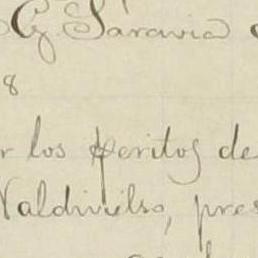 G. Saravia
8
los peritos de
Valdivielso, pres